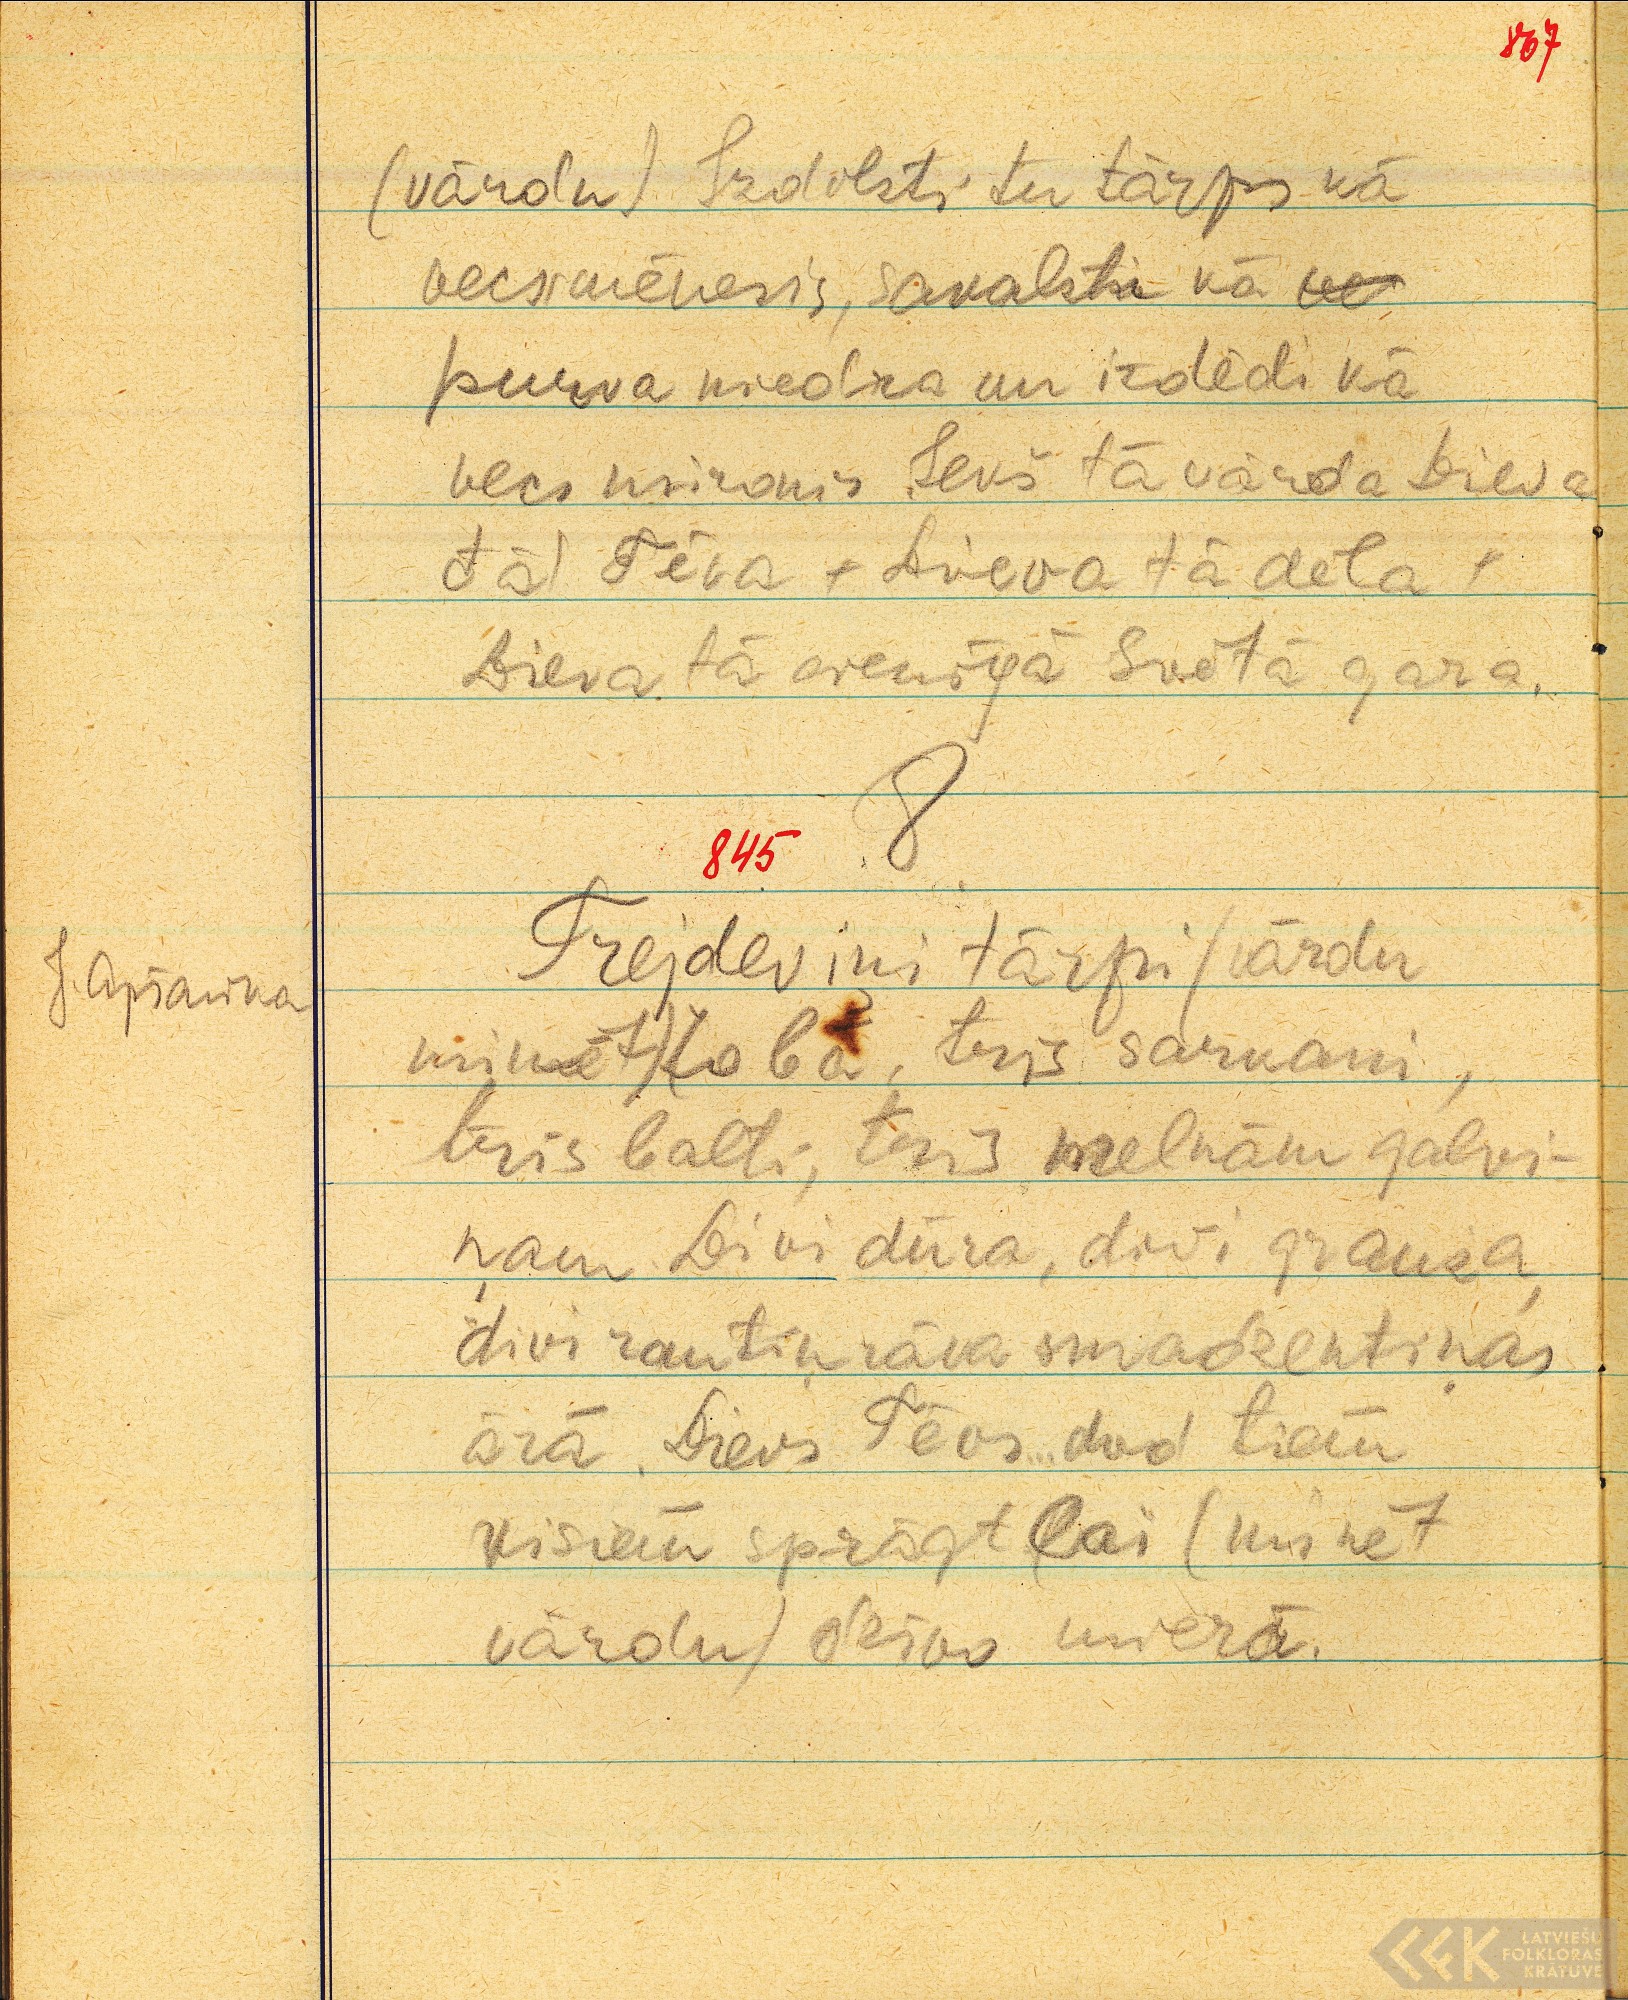 867
(vārdu) Izdilsti tu tārps kā
vecs mēnesis, sakalsti kā ve
purva niedra un izdēdi kā
vecs mironis Iekš tā vārda Dieva
tā Tēva + Dieva tā dēla +
Dieva tā vienīgā Svētā gara.
8
845
Trejdeviņi tārpi (vārdu
J. Apšanika
minēt) zobā, trīs sarkani,
trīs balti, trīs melnām galvi-
ņam Divi dūra, divi grauza,
divi rautin rāva smadzentiņas
ārā. Dievs Tēvs dod tiem
visiem sprāgt lai (minēt
vārdu) dzīvo mierā.
LATVIEŠU
FOLKLORAS
KRĀTUVE